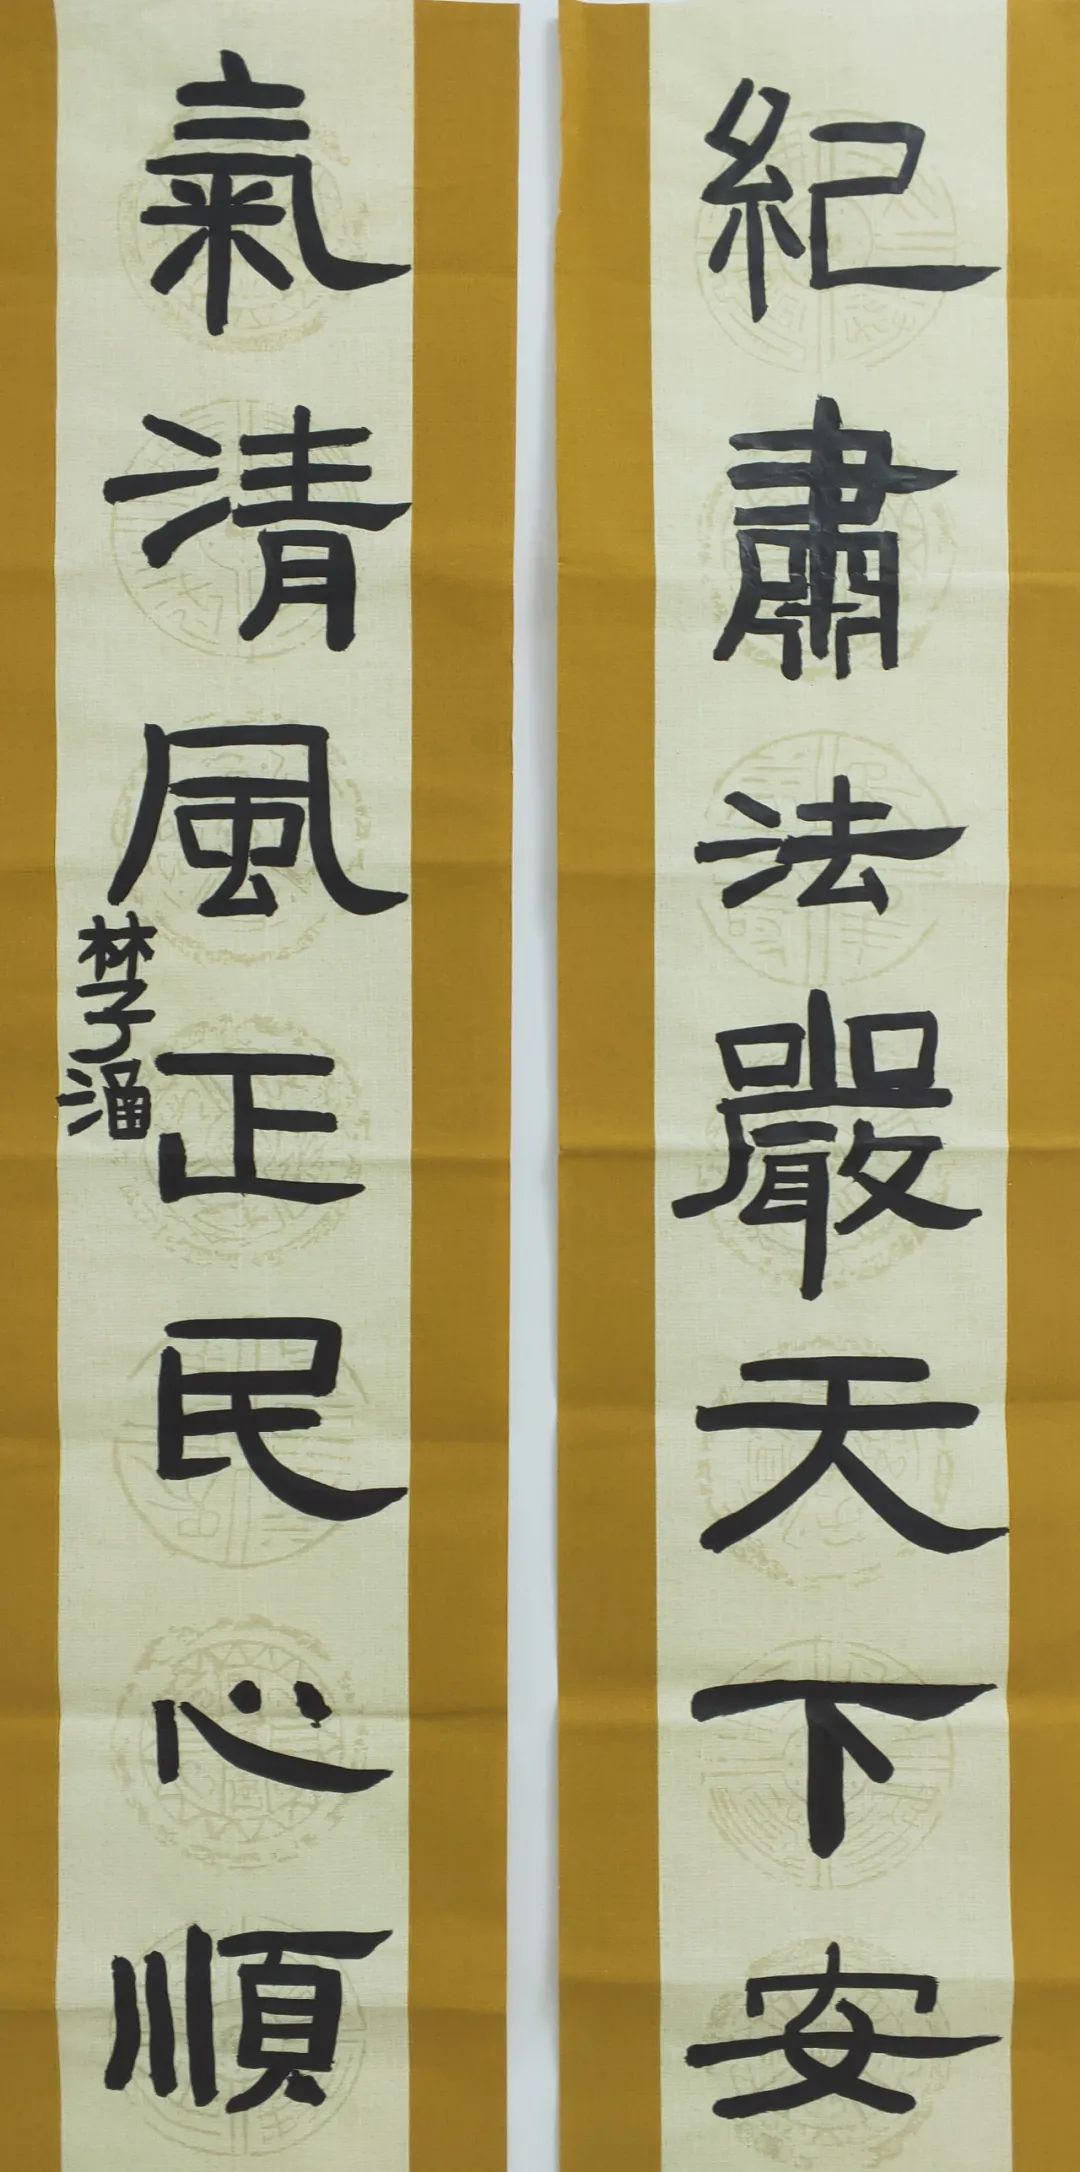 紀肅法嚴天下安
氣清風正民心順
林子涵